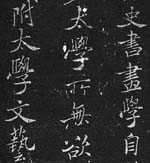 史書盡學自
太學所無欲
附太學文藝